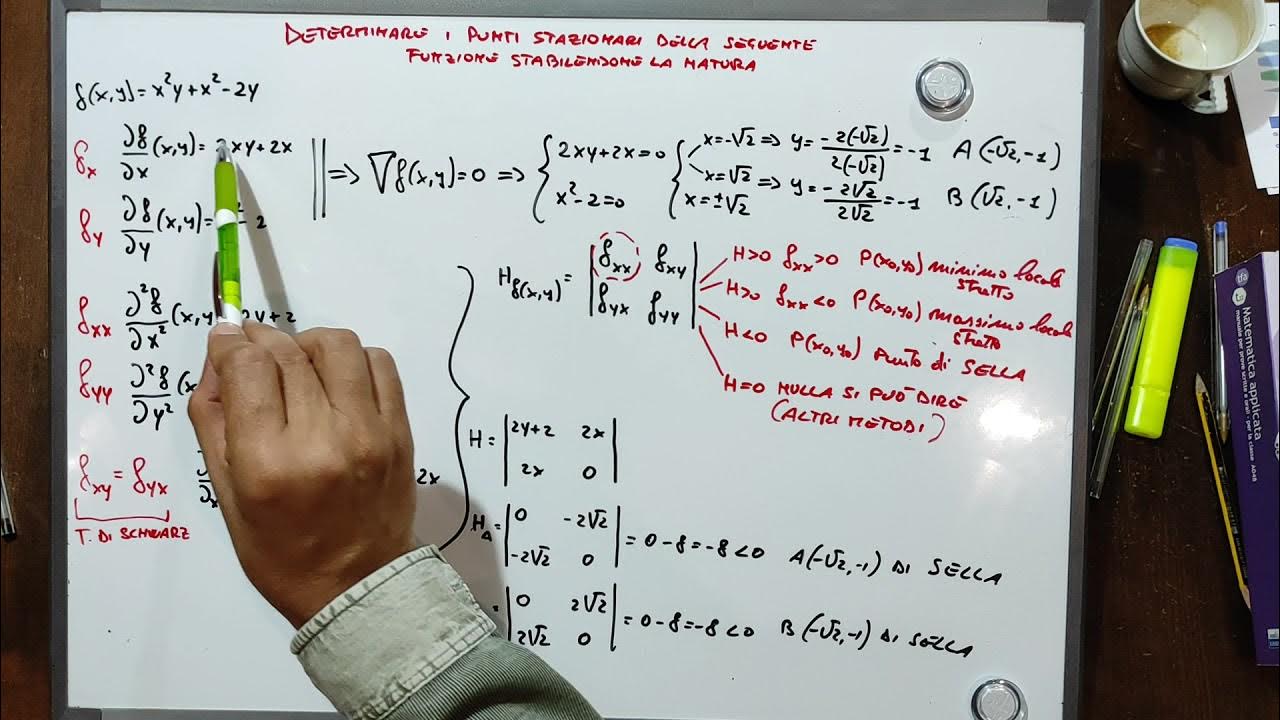 DETERMINARE I PUNTI STAZIONARI DELLA SEGUENTE
FUNZIONE STABILENDONE LA NATURA
f(x,y)=x²y+x²-2y
fx ∂f/∂x (x,y)=2xy+2x
fy ∂f/∂y (x,y)= - 2
=> ∇f(x,y)=0 =>
2xy+2x=0
x²-2=0
x=-√2 => y= -2(-√2)/2(-√2) =-1 A(-√2,-1)
x=√2 => y= -2√2/2√2 =-1 B(√2,-1)
x=±√2
fxx ∂²f/∂x² (x,y 2y+2
fyy ∂²f/∂y² (x
fxy = fyx ∂ 2x
T. DI SCHWARZ
Hf(x,y)= | fxx fxy |
| fyx fyy |
H>0 fxx>0 P(x0,y0) minimo locale stretto
H>0 fxx<0 P(x0,y0) massimo locale stretto
H<0 P(x0,y0) Punto di SELLA
H=0 NULLA SI PUÒ DIRE
(ALTRI METODI)
H= | 2y+2 2x |
| 2x 0 |
HA= | 0 -2√2 |
| -2√2 0 | = 0-8=-8<0 A(-√2,-1) DI SELLA
= | 0 2√2 |
| 2√2 0 | = 0-8=-8<0 B(-√2,-1) DI SELLA
Matematica applicata